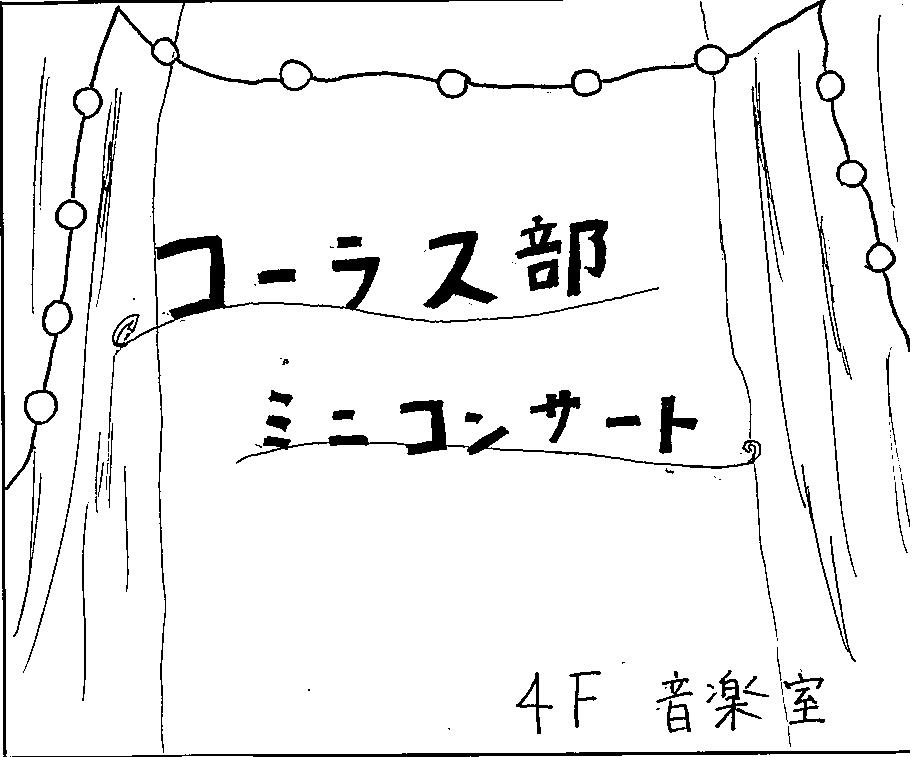 コーラス部
ミニコンサート
4F 音楽室